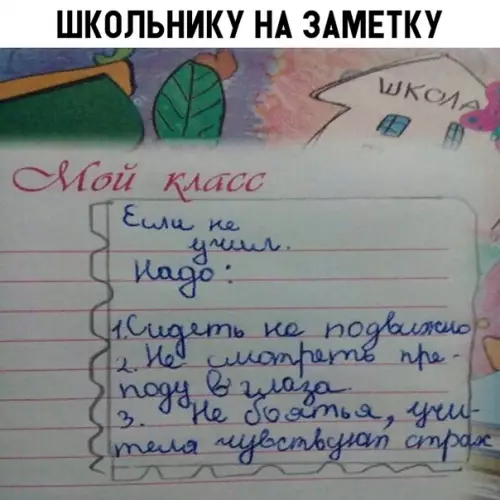 ШКОЛЬНИКУ НА ЗАМЕТКУ
ШКОЛА
Мой класс
Если не
учил.
Надо:
1. Сидеть не подвижно
2. Не смотреть пре-
поду в глаза.
3. Не боятья, учи-
теля чувствуют страх